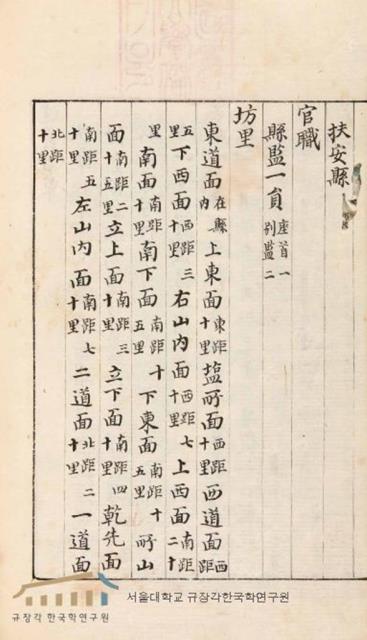 扶安縣
官職
縣監一員座首一別監二
坊里
東道面在縣內上東面東距十里塩所面西距十里西道面西距
五里下西面西距三十里右山內面西距七十里上西面南距二十
里南面南距十里南下面南距十五里下東面南距十五里所山
面南距二十五里立上面南距三十里立下面南距四十里乾先面
南距五十里左山內面南距七十里二道面北距二十里一道面
北距十里
규장각 한국학연구원
서울대학교 규장각한국학연구원